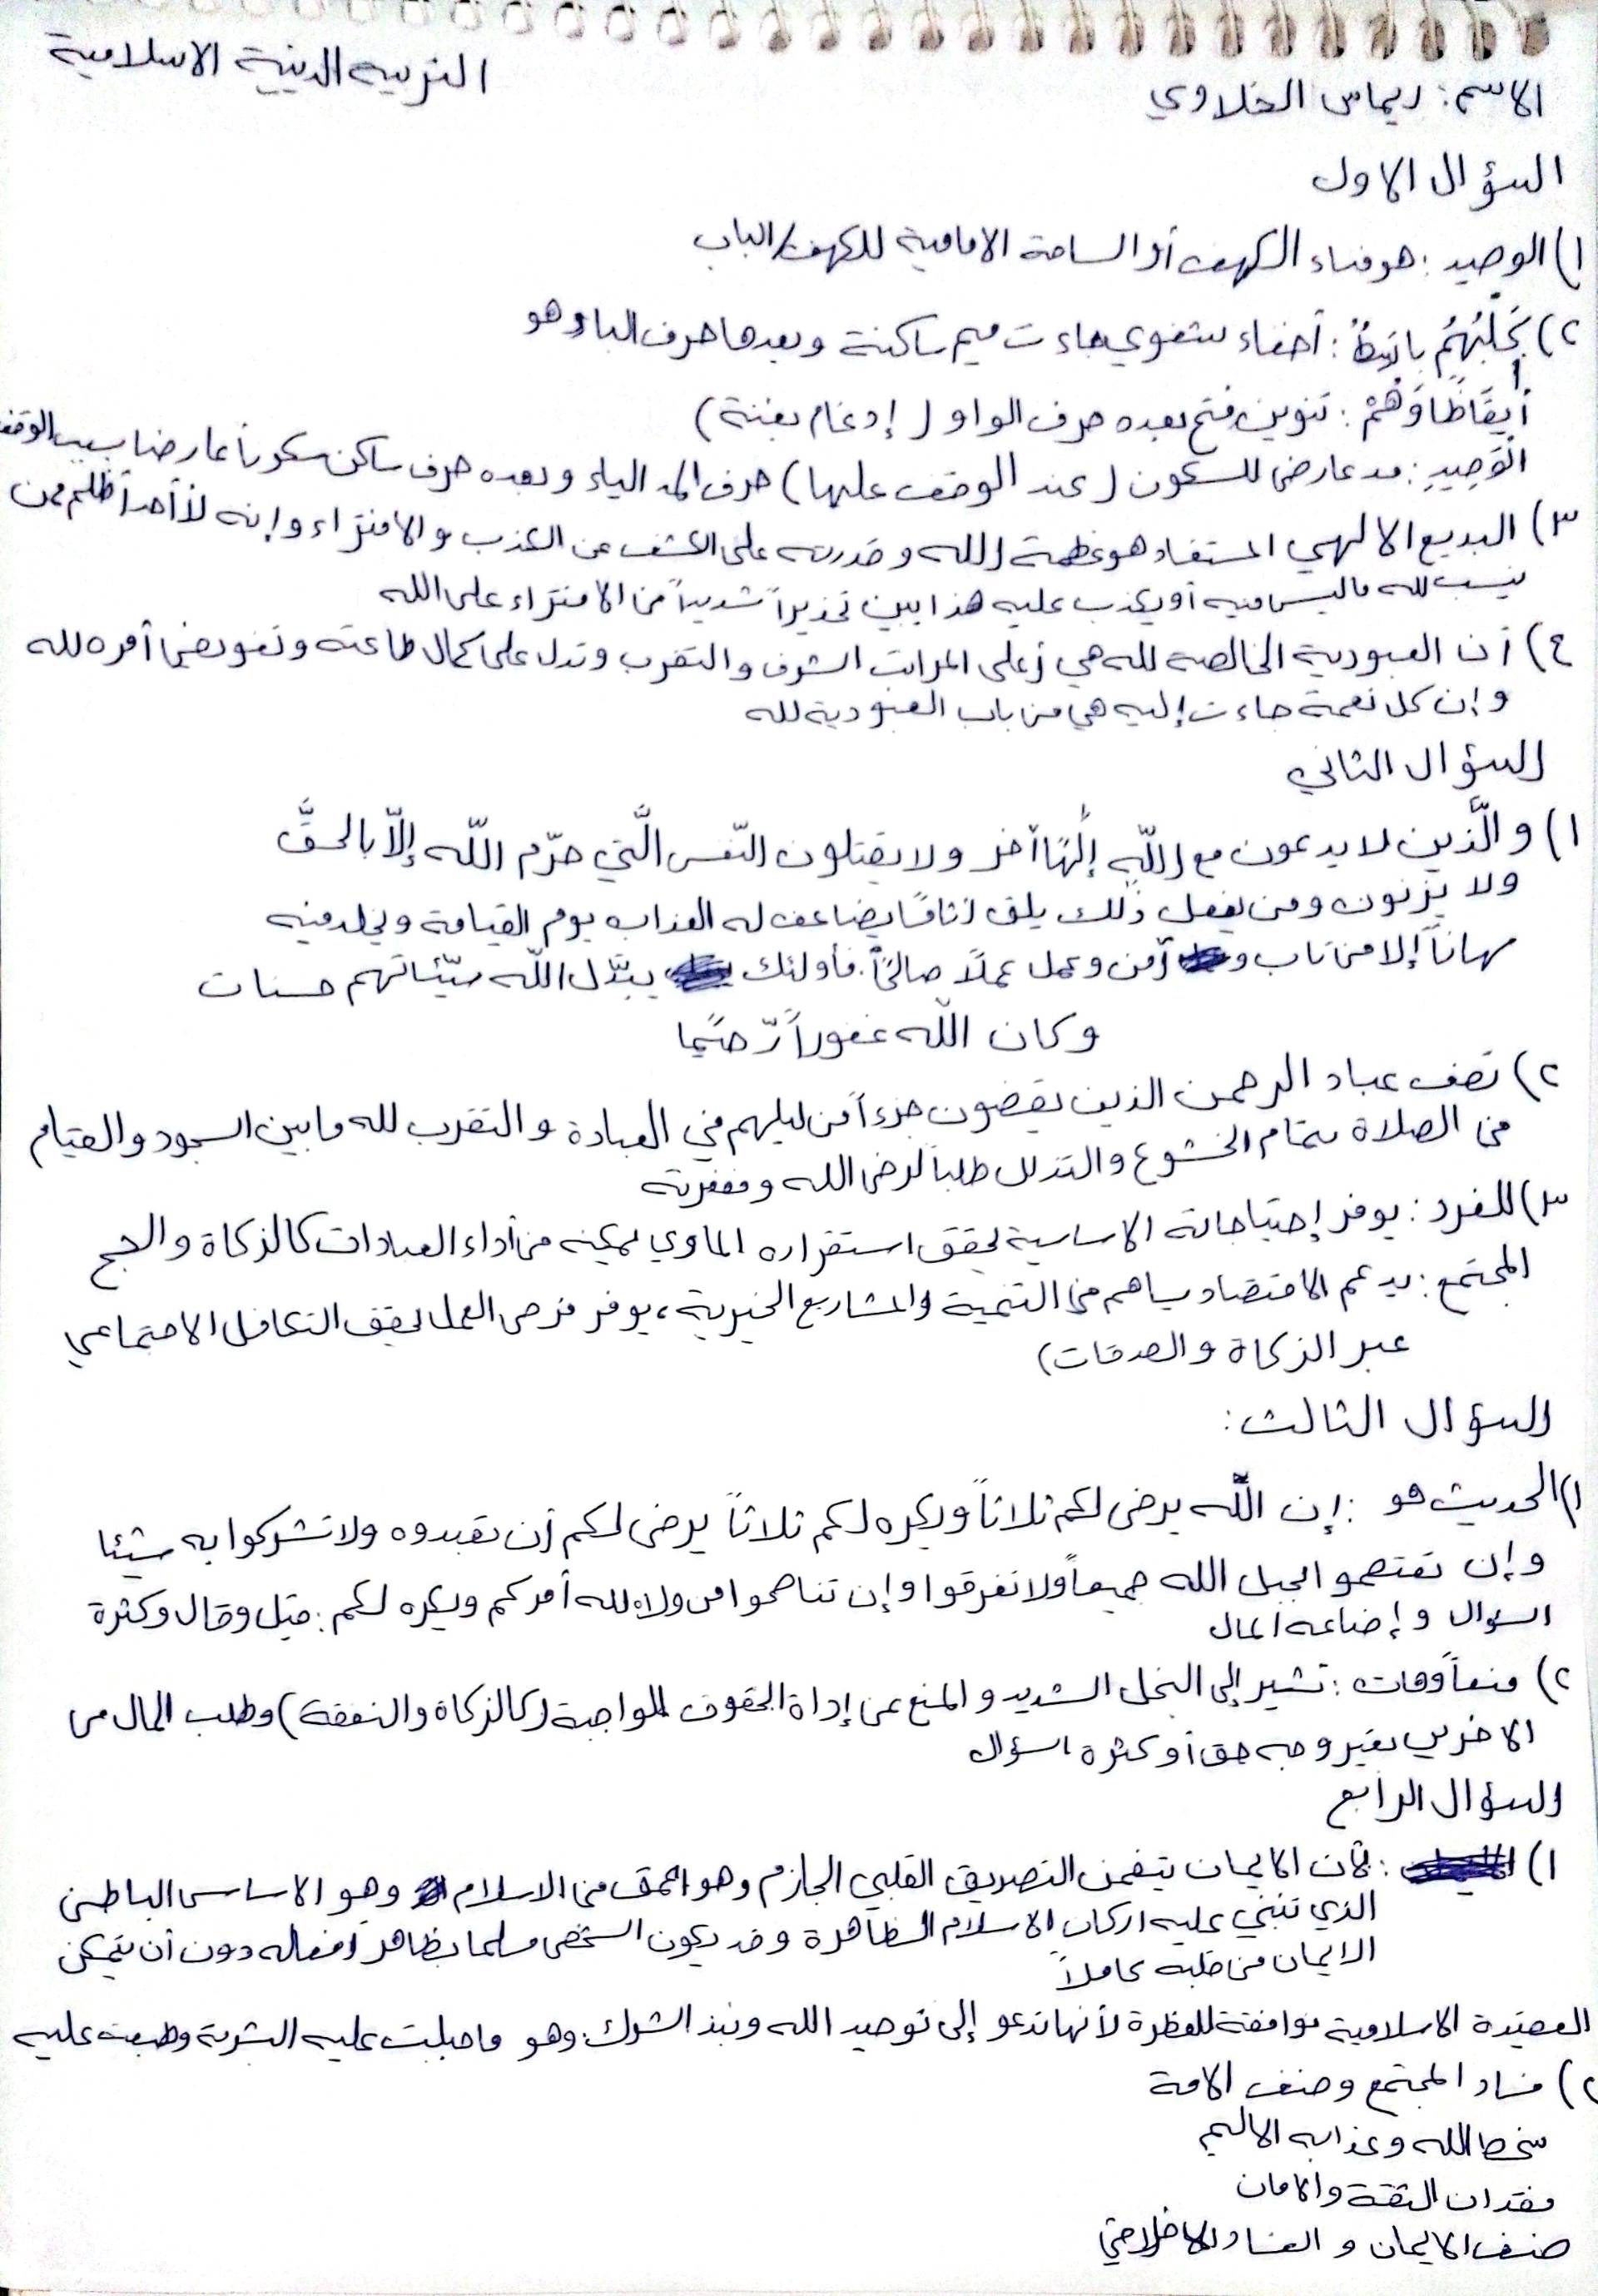 التربيه الدينية الاسلامية
الاسم: ريماس الخلاوي
السؤال الاول
١) الوصيد: هو فناء الكهف أو الساحة الامامية للكهف/الباب
٢) كَلْبُهُمْ بَاسِطٌ: أخفاء شفوي جاءت ميم ساكنة وبعدها حرف الباء وهو
أَيقَاظًا وَهُمْ: تنوين فتح بعده حرف الواو (إدغام بغنة)
الْوَصِيدِ: مد عارض للسكون (عند الوقف عليها) حرف المد الياء وبعده حرف ساكن سكوناً عارضا بسبب الوقف
٣) البديع الالهي المستفاد هو عظمة الله وقدرته على الكشف عن الكذب والافتراء وإنه لا أحد أظلم ممن
ينسب لله ماليس فيه أو يكذب عليه هذا يبين تحذيراً شديداً من الافتراء على الله
٤) أن العبودية الخالصة لله هي أعلى المراتب الشرف والتقرب وتدل على كمال طاعته وتفويض أمره لله
وإن كل نعمة جاءت إليه هي من باب العبودية لله
السؤال الثاني
١) والَّذين لا يدعون مع اللّهِ إلٰهًا آخر ولا يقتلون النّفس الَّتي حرّم اللّه إلاّ بالحقَّ
ولا يزنون ومن يفعل ذٰلك يلق أثامًا يضاعف له العذاب يوم القيامة ويخلد فيه
مهاناً إلا من تاب و آمن وعمل عملًا صالحًا. فأولئك يبدّل اللّه سيّئاتهم حسنات
وكان اللّه غفوراً رّحيمًا
٢) تصف عباد الرحمن الذين يقضون جزءاً من ليلهم في العبادة والتقرب لله مابين السجود والقيام
في الصلاة بتمام الخشوع والتذلل طلباً لرضى الله ومغفرته
٣) للفرد: يوفر إحتياجاته الاساسية لحقق استقراره الماوي يمكينه من أداء العبادات كالزكاة والحج
المجتمع: يدعم الاقتصاد يساهم في التنمية والمشاريع الخيرية، يوفر فرص العمل لحقق التكافل الاجتماعي
عبر الزكاة والصدقات)
السؤال الثالث:
١) الحديث هو: إن اللّه يرضى لكم ثلاثاً ويكره لكم ثلاثاً يرضى لكم أن تعبدوه ولاتشركوا به شيئا
وإن تعتصمو الحبل الله جميعاً ولاتفرقوا وإن تناصحوا من ولاه لله أمركم ويكره لكم: قيل وقال وكثرة
السؤال وإضاعه المال
٢) منعاً وهات: تشير إلى البخل الشديد والمنع عن إداة الحقوق للواجبة (كالزكاة والنفقة) وطلب المال من
الاخرين بغير وجه حق أو كثرة سؤال
السؤال الرابع
١) : لأن الايمان يتضمن التصديق القلبي الجازم وهو أعمق من الاسلام وهو الاساس الباطني
الذي تنبني عليه اركان الاسلام الظاهرة وقد يكون الشخص مسلما بظاهر أفعاله دون أن يتمكن
الايمان من قلبه كاملاً
العقيدة الاسلامية موافقة للفطرة لأنها تدعو إلى توحيد الله ونبذ الشرك: وهو ماجبلت عليه البشرية وطبعت عليه
٢) فساد المجتمع وضعف الامة
سخط الله وعذابه الاليم
فقدان الثقة والامان
ضعف الايمان و الفساد الاخلاقي